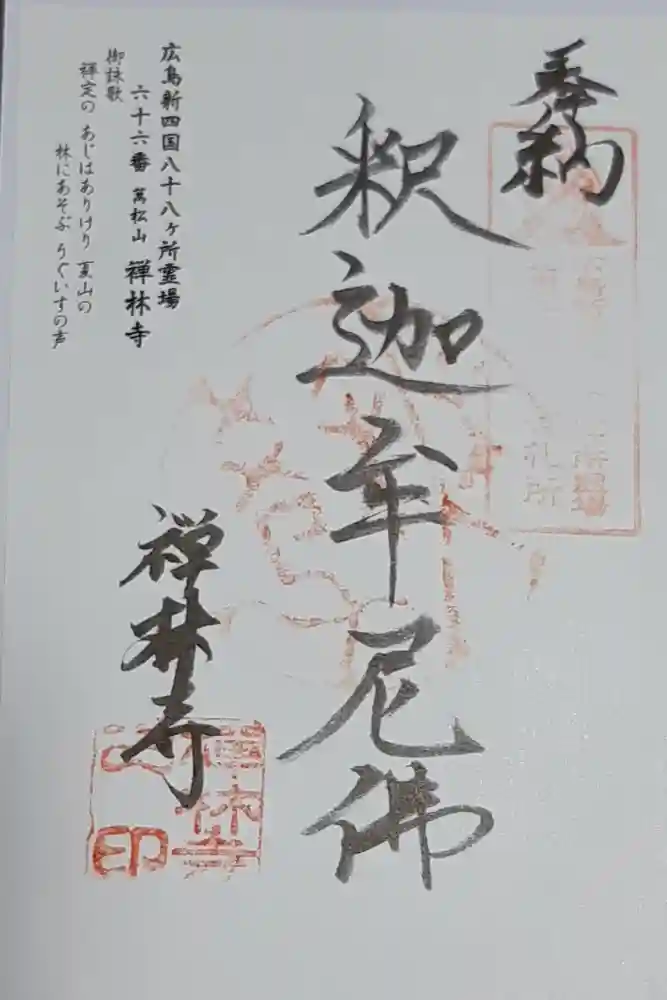 奉納
釈迦牟尼佛
禅林寺
広島新四国八十八ヶ所霊場
六十六番 萬松山 禅林寺
御詠歌
禅定の あじはありけり 夏山の
林にあそぶ うぐいすの声
札所
禅林寺
印